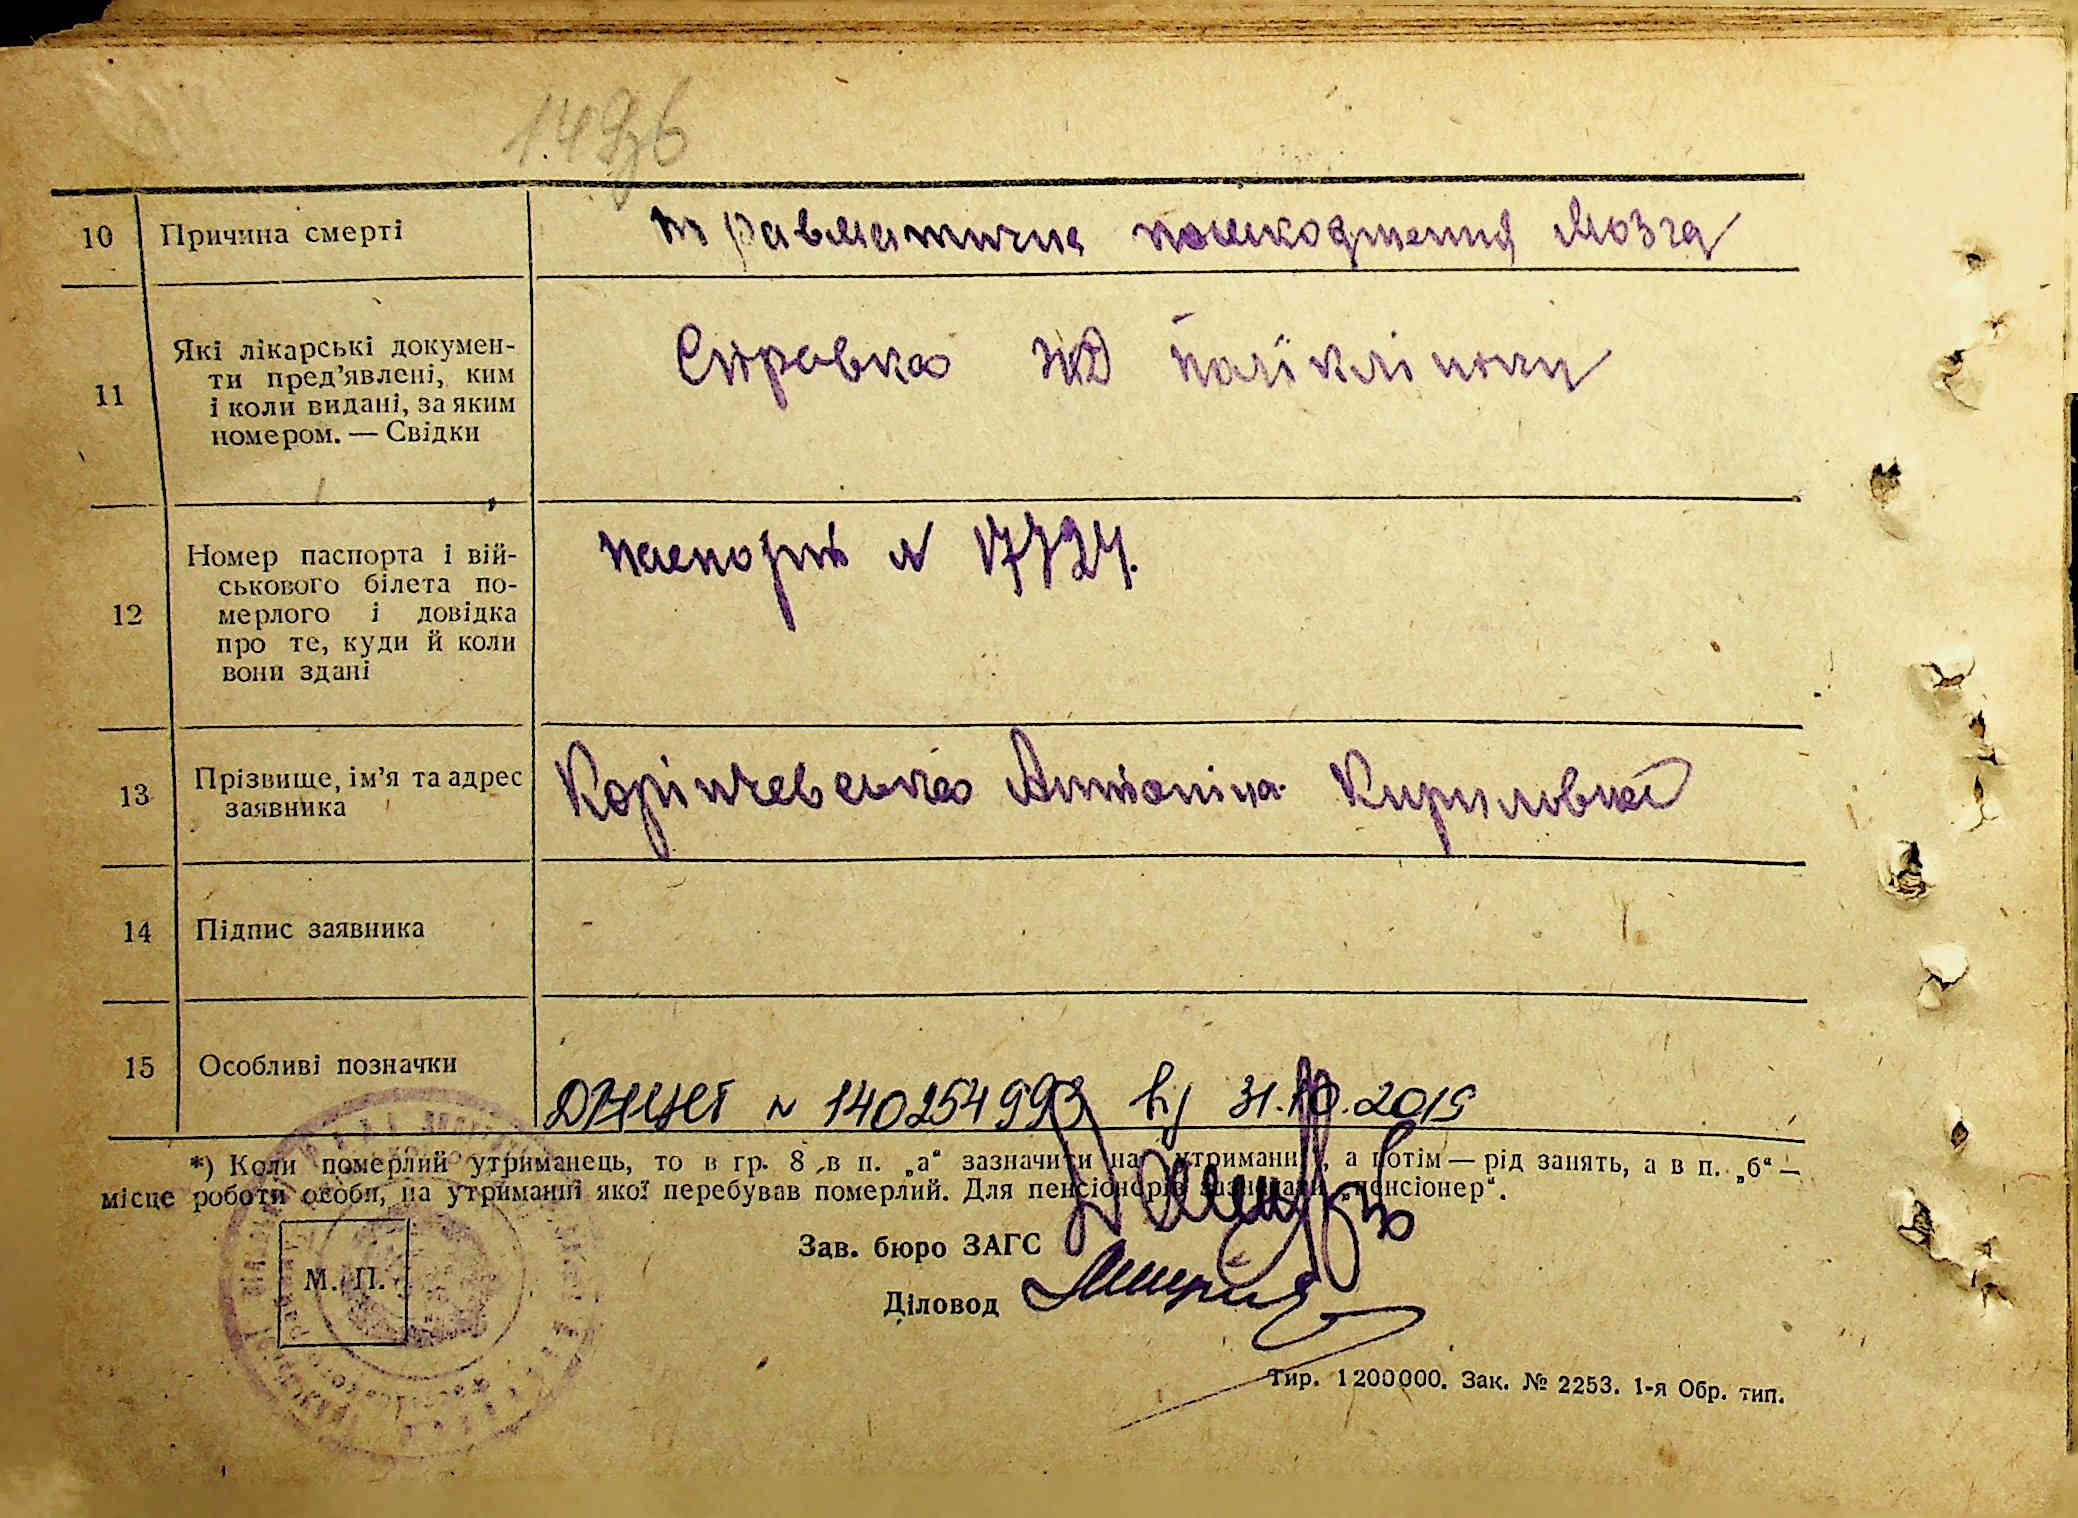 10 Причина смерті травматичне пошкодження мозга
11 Які лікарські докумен-
ти пред’явлені, ким
і коли видані, за яким
номером. — Свідки
Справка ЖД поліклініки
12 Номер паспорта і вій-
ськового білета по-
мерлого і довідка
про те, куди й коли
вони здані
паспорт N 17724.
13 Прізвище, ім’я та адрес
заявника
Антоніна Кириловна
14 Підпис заявника
15 Особливі позначки
N 140254993 від 31.10.2019
*) Коли померлий утриманець, то в гр. 8 в п. „а“ зазначити на утриманні, а потім — рід занять, а в п. „б“ —
місце роботи особи, на утриманні якої перебував померлий. Для пенсіонерів зазначати „пенсіонер“.
Зав. бюро ЗАГС
М. П.
Діловод
Тир. 1200000. Зак. № 2253. 1-я Обр. тип.